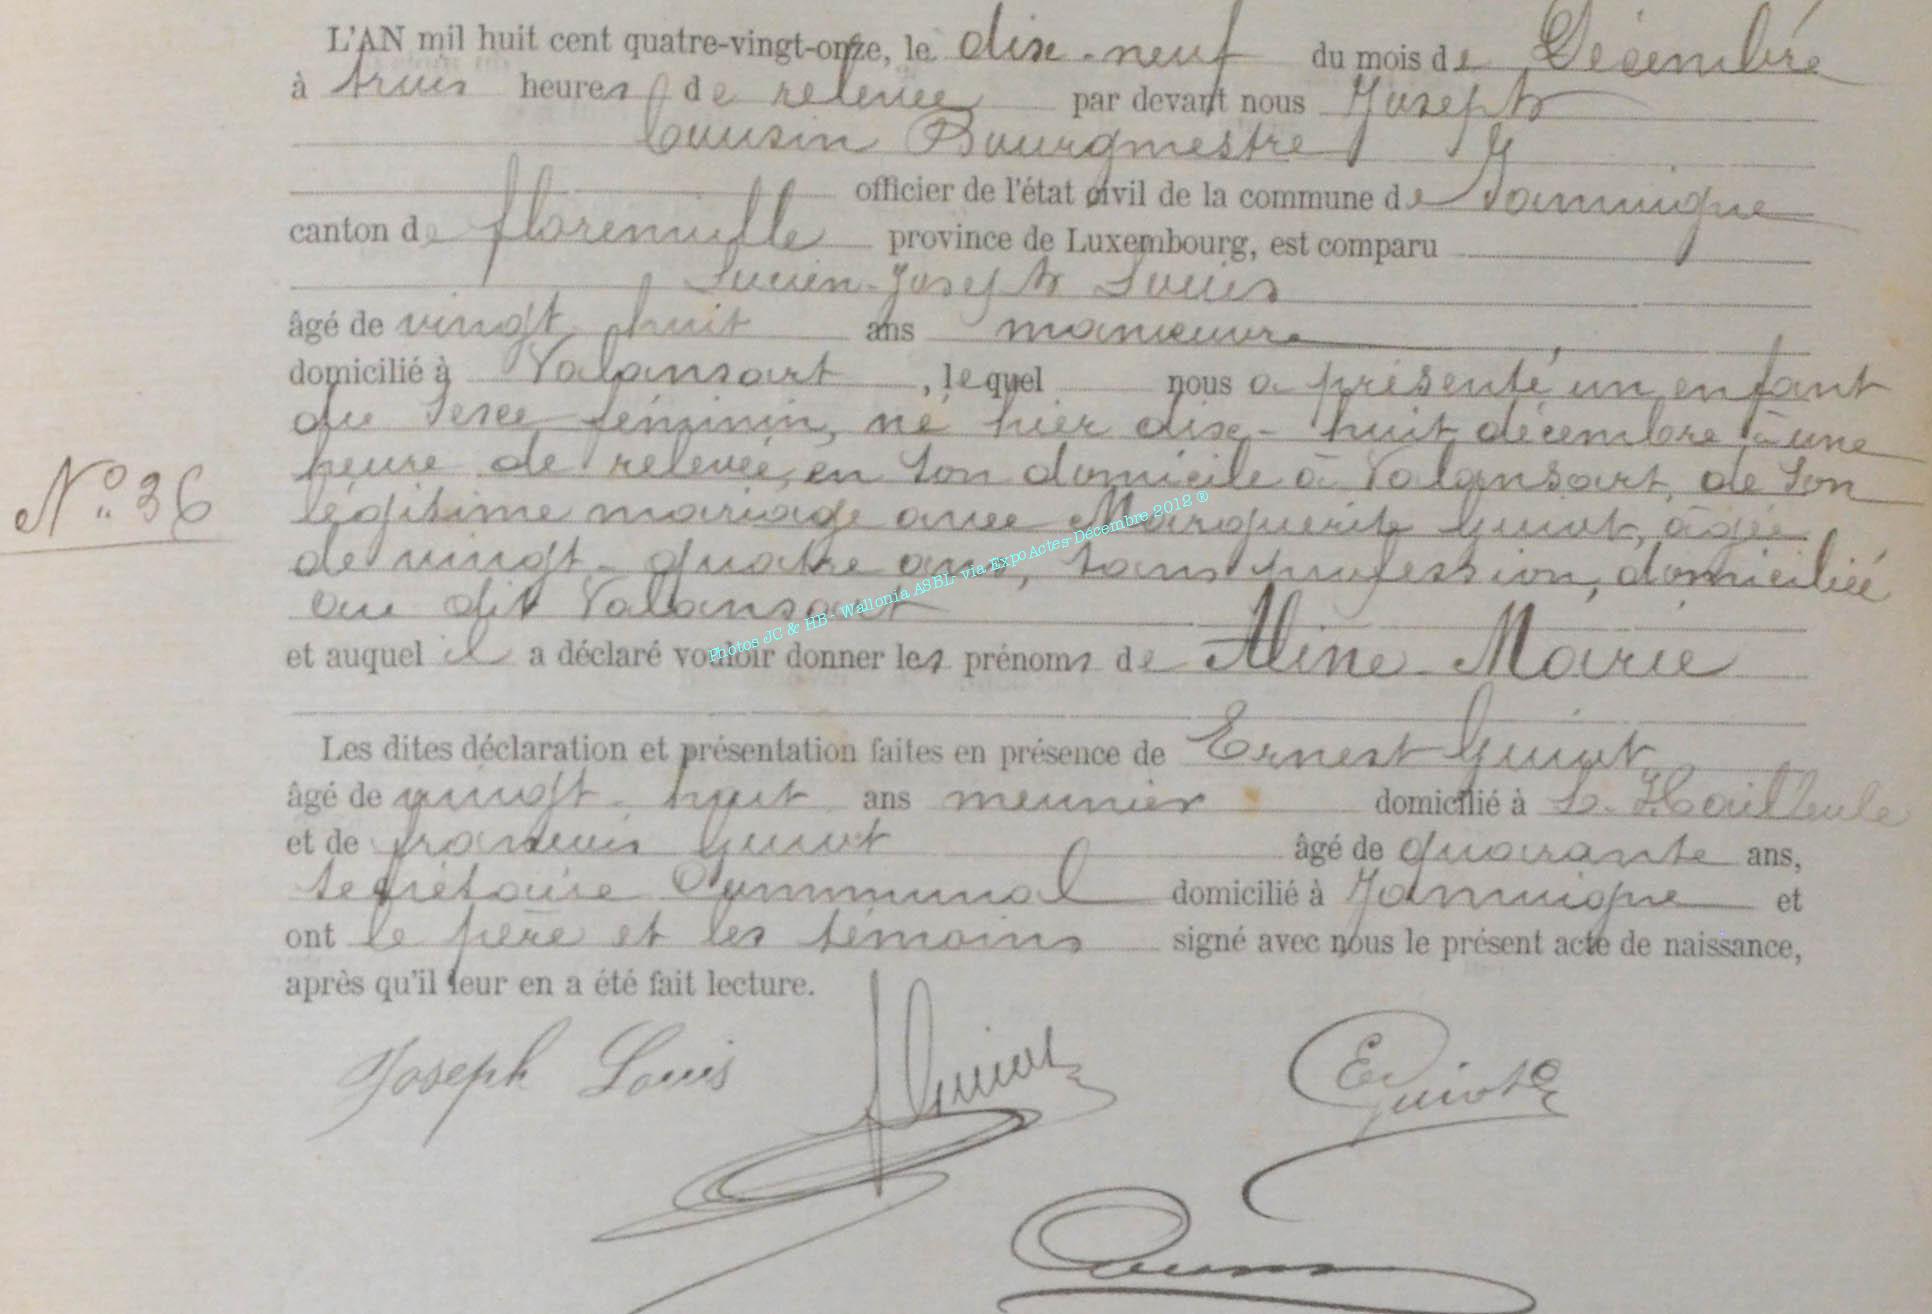 L'AN mil huit cent quatre-vingt-onze, le dix-neuf du mois de Décembre
à trois heures de relevée par devant nous Joseph
Cousin Bourgmestre
officier de l'état civil de la commune de Jamoigne
canton de florenville province de Luxembourg, est comparu
Lucien-Joseph Louis
âgé de vingt huit ans manœuvre
domicilié à Valansart, lequel nous a présenté un enfant
du sexe féminin, né hier dix-huit décembre à une
heure de relevée, en son domicile à Valansart, de son
légitime mariage avec Marguerite Guiot, âgée
de vingt-quatre ans, sans profession, domiciliée
au dit Valansart
N° 36
et auquel il a déclaré vouloir donner les prénoms de Aline Marie
Les dites déclaration et présentation faites en présence de Ernest Guiot
âgé de vingt-huit ans meunier domicilié à
et de françois Guiot âgé de quarante ans,
secrétaire Communal domicilié à Jamoigne et
ont le père et les témoins signé avec nous le présent acte de naissance,
après qu'il leur en a été fait lecture.
Joseph Louis f Guiot E Guiot
Cousin
Photos JC & HB - Wallonia ASBL via ExpoActes-Décembre 2012 ®